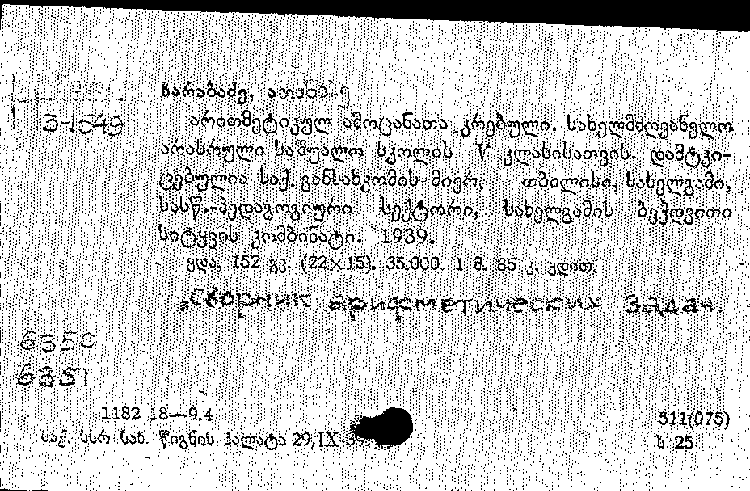 ხარაბაძე,
3-1549
არითმეტიკულ ამოცანათა კრებული. სახელმძღვანელო
არასრული საშუალო სკოლის V კლასისათვის. დამტკი-
ცებულია საქ. განსახკომის მიერ. თბილისი, სახელგამი,
სასწ.-პედაგოგიური სექტორი, სახელგამის ბეჭდვითი
სიტყვის კომბინატი. 1939.
ყდა, 152 გვ. (22X15). 35.000. 1 მ. 85 კ. ყდით.
Сборник арифметических задач.
6350
6351
1182 18—9.4
511(075)
საქ. სსრ სახ. წიგნის პალატა 29,IX
ხ 25